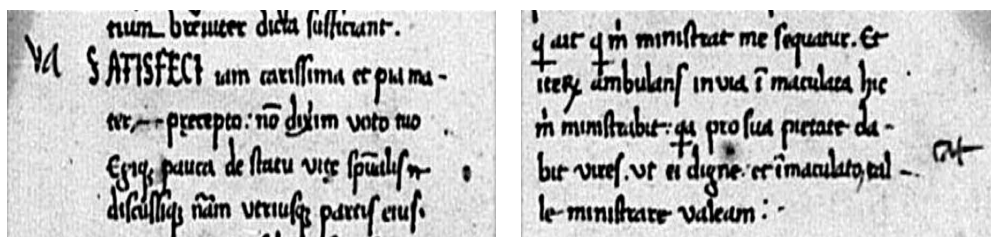 num breuiter dicta sufficiant.
Va SATISFECI iam carissima et pia ma-
ter, precepto. nō dixim uoto tuo
Egiq; pauca de statu uite sp̄ualis
discussiq; nām utriusq; partis eius.
q ait q m̄ ministrat me sequatur. Et
ambulans in uia īmaculata hic
m̄ ministrabit. qa pro sua pietate da-
bit uires. ut ei digne et īmaculato,
le ministrare ualeam: